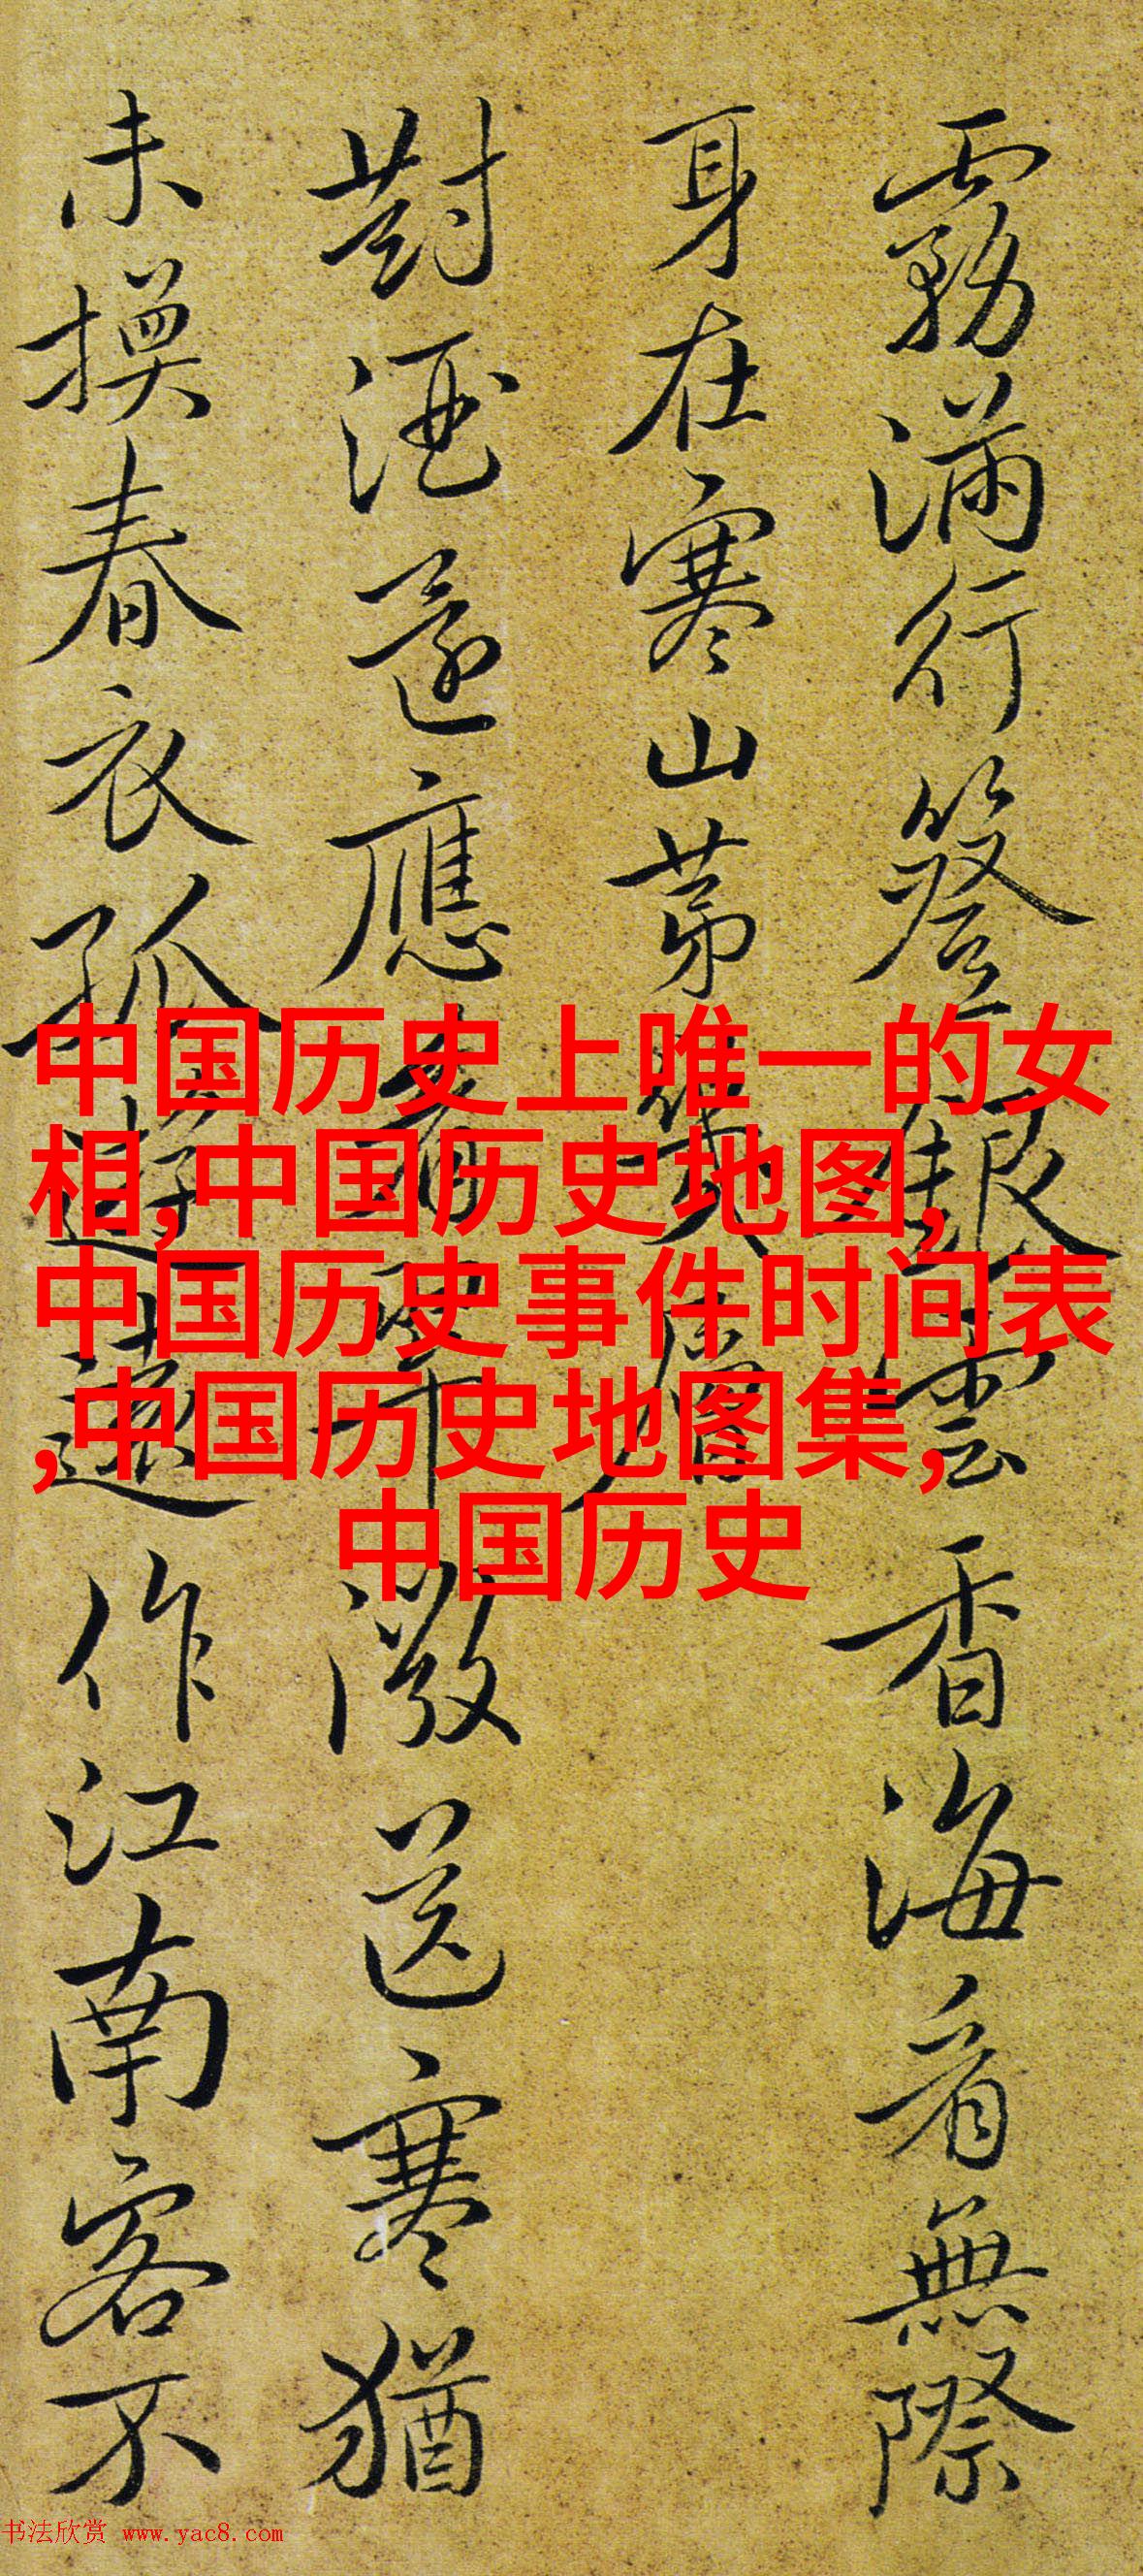 霧滿行簦銀雲香海看無際
身在寒山苐層
對酒還應看送寒猶
未換春衣孤作江南客不
中国历史上唯一的女
相,中国历史地图,
中国历史事件时间表
,中国历史地图集,
中国历史
书法欣赏 www.yac8.com